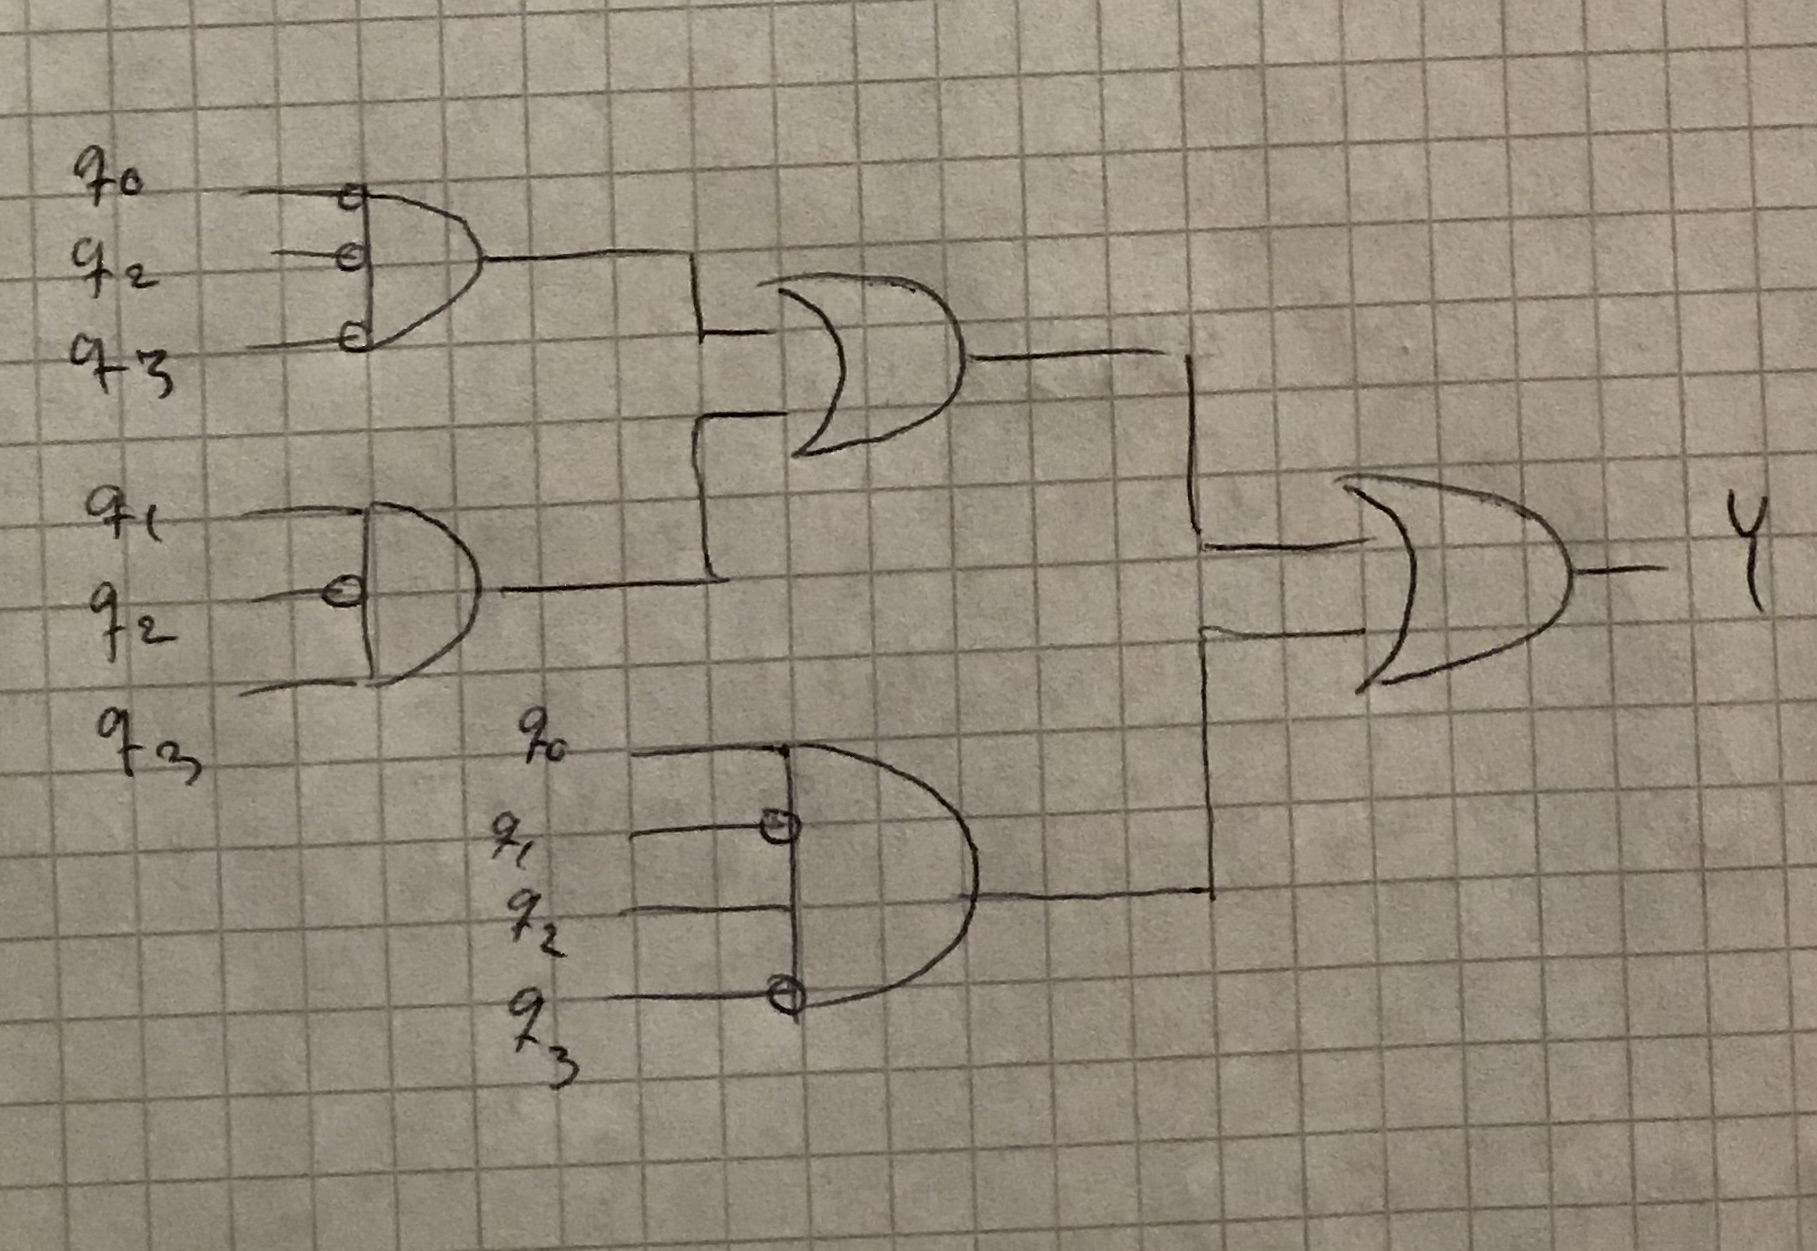 q0
q2
q3
q1
q2
q3
q0
q1
q2
q3
Y